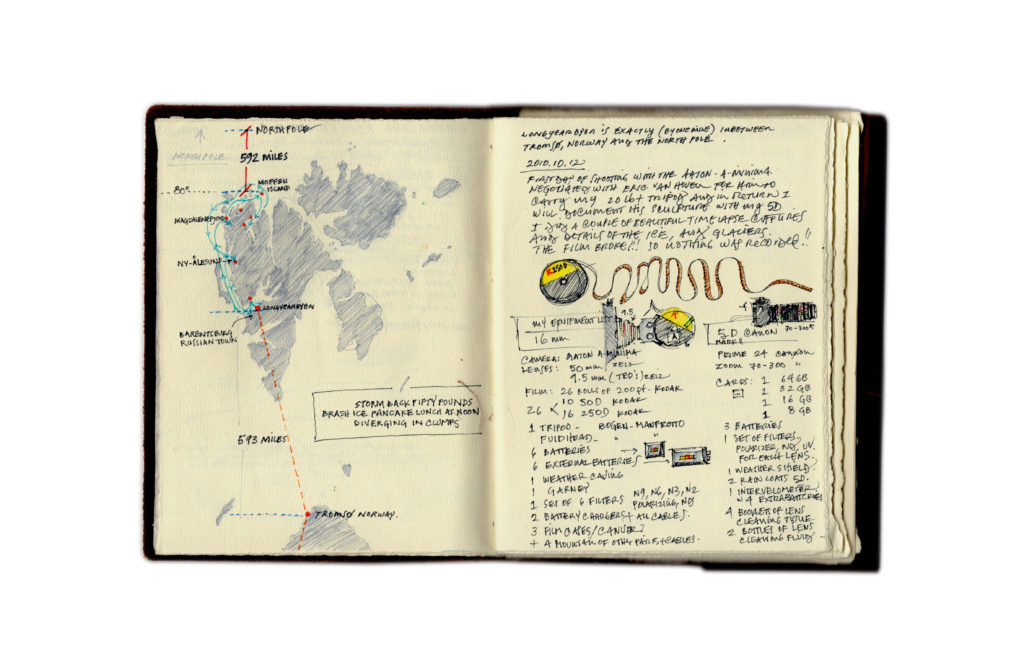 NORTH POLE
NORTH POLE
592 MILES
80°
MOFFEN
ISLAND
MAGDALENEFJORD
NY-ÅLESUND
LONGYEARBYEN
BARENTSBURG
RUSSIAN TOWN
STORM BACK FIFTY POUNDS
BRASH ICE PANCAKE LUNCH AT NOON
DIVERGING IN CLUMPS
593 MILES
TROMSØ NORWAY.
LONGYEARBYEN IS EXACTLY (BY ONE MILE) INBETWEEN
TROMSØ, NORWAY AND THE NORTH POLE.
2010.10.12
FIRST DAY OF SHOOTING WITH THE AATON-A-MINIMA.
NEGOTIATED WITH ERIC VAN HOVEN FOR HIM TO
CARRY MY 20 LB+ TRIPOD AND IN RETURN I
WILL DOCUMENT HIS SCULPTURE WITH MY 5D
I DID A COUPLE OF BEAUTIFUL TIME LAPSE CAPTURES
AND DETAILS OF THE ICE, AND GLACIERS.
THE FILM BROKE!! SO NOTHING WAS RECORDED!!
K 250D
9.5
K
A
MY EQUIPMENT LIST
16 mm
CAMERA: AATON A-MINIMA
LENSES: 50 mm ZEIZ
9.5 mm (TED'S) ZEIZ
FILM: 26 ROLLS OF 200 ft. KODAK
26 < 10 50D KODAK
16 250D KODAK
1 TRIPOD - BOGEN-MANFROTTO
FLUIDHEAD - "
6 BATTERIES
6 EXTERNAL BATTERIES
1 WEATHER CASING
1 GARNEY
1 SET OF 6 FILTERS N9, N6, N3, N2
POLARIZING, ND
2 BATTERY CHARGERS + ALL CABLES.
3 FILM CASES/CANISTER
+ A MOUNTAIN OF OTHER PARTS + CABLES.
5D CANON 70-300
MARK II
PRIME 24 CANON
ZOOM 70-300 "
CARDS: 1 64 GB
1 32 GB
1 16 GB
1 8 GB
3 BATTERIES
1 SET OF FILTERS,
POLARIZER, ND, UV.
FOR EACH LENS.
1 WEATHER SHIELD.
2 RAIN COATS 5D.
1 INTERVELOMETER
W 4 EXTRA BATTERIES
4 BOOKLET OF LENS
CLEANING TISSUE
2 BOTTLES OF LENS
CLEANING FLUID